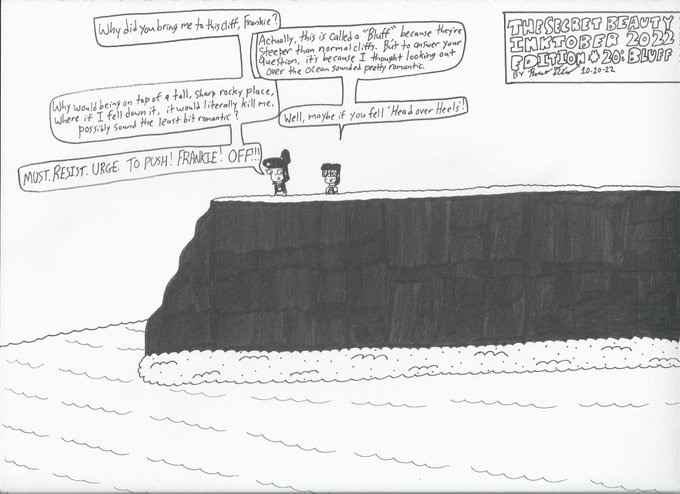 Why did you bring me to this cliff, Frankie?
Actually, this is called a "Bluff" because they're
steeper than normal cliffs. But to answer your
question, it's because I thought looking out
over the ocean sounded pretty romantic.
Why would being on top of a tall, sharp rocky place,
where if I fell down it, it would literally kill me,
possibly sound the least bit romantic?
Well, maybe if you fell 'Head over Heels'!
MUST. RESIST. URGE. TO PUSH! FRANKIE! OFF!!!
THE SECRET BEAUTY
INKTOBER 2022
EDITION #20: BLUFF
BY 10-20-22